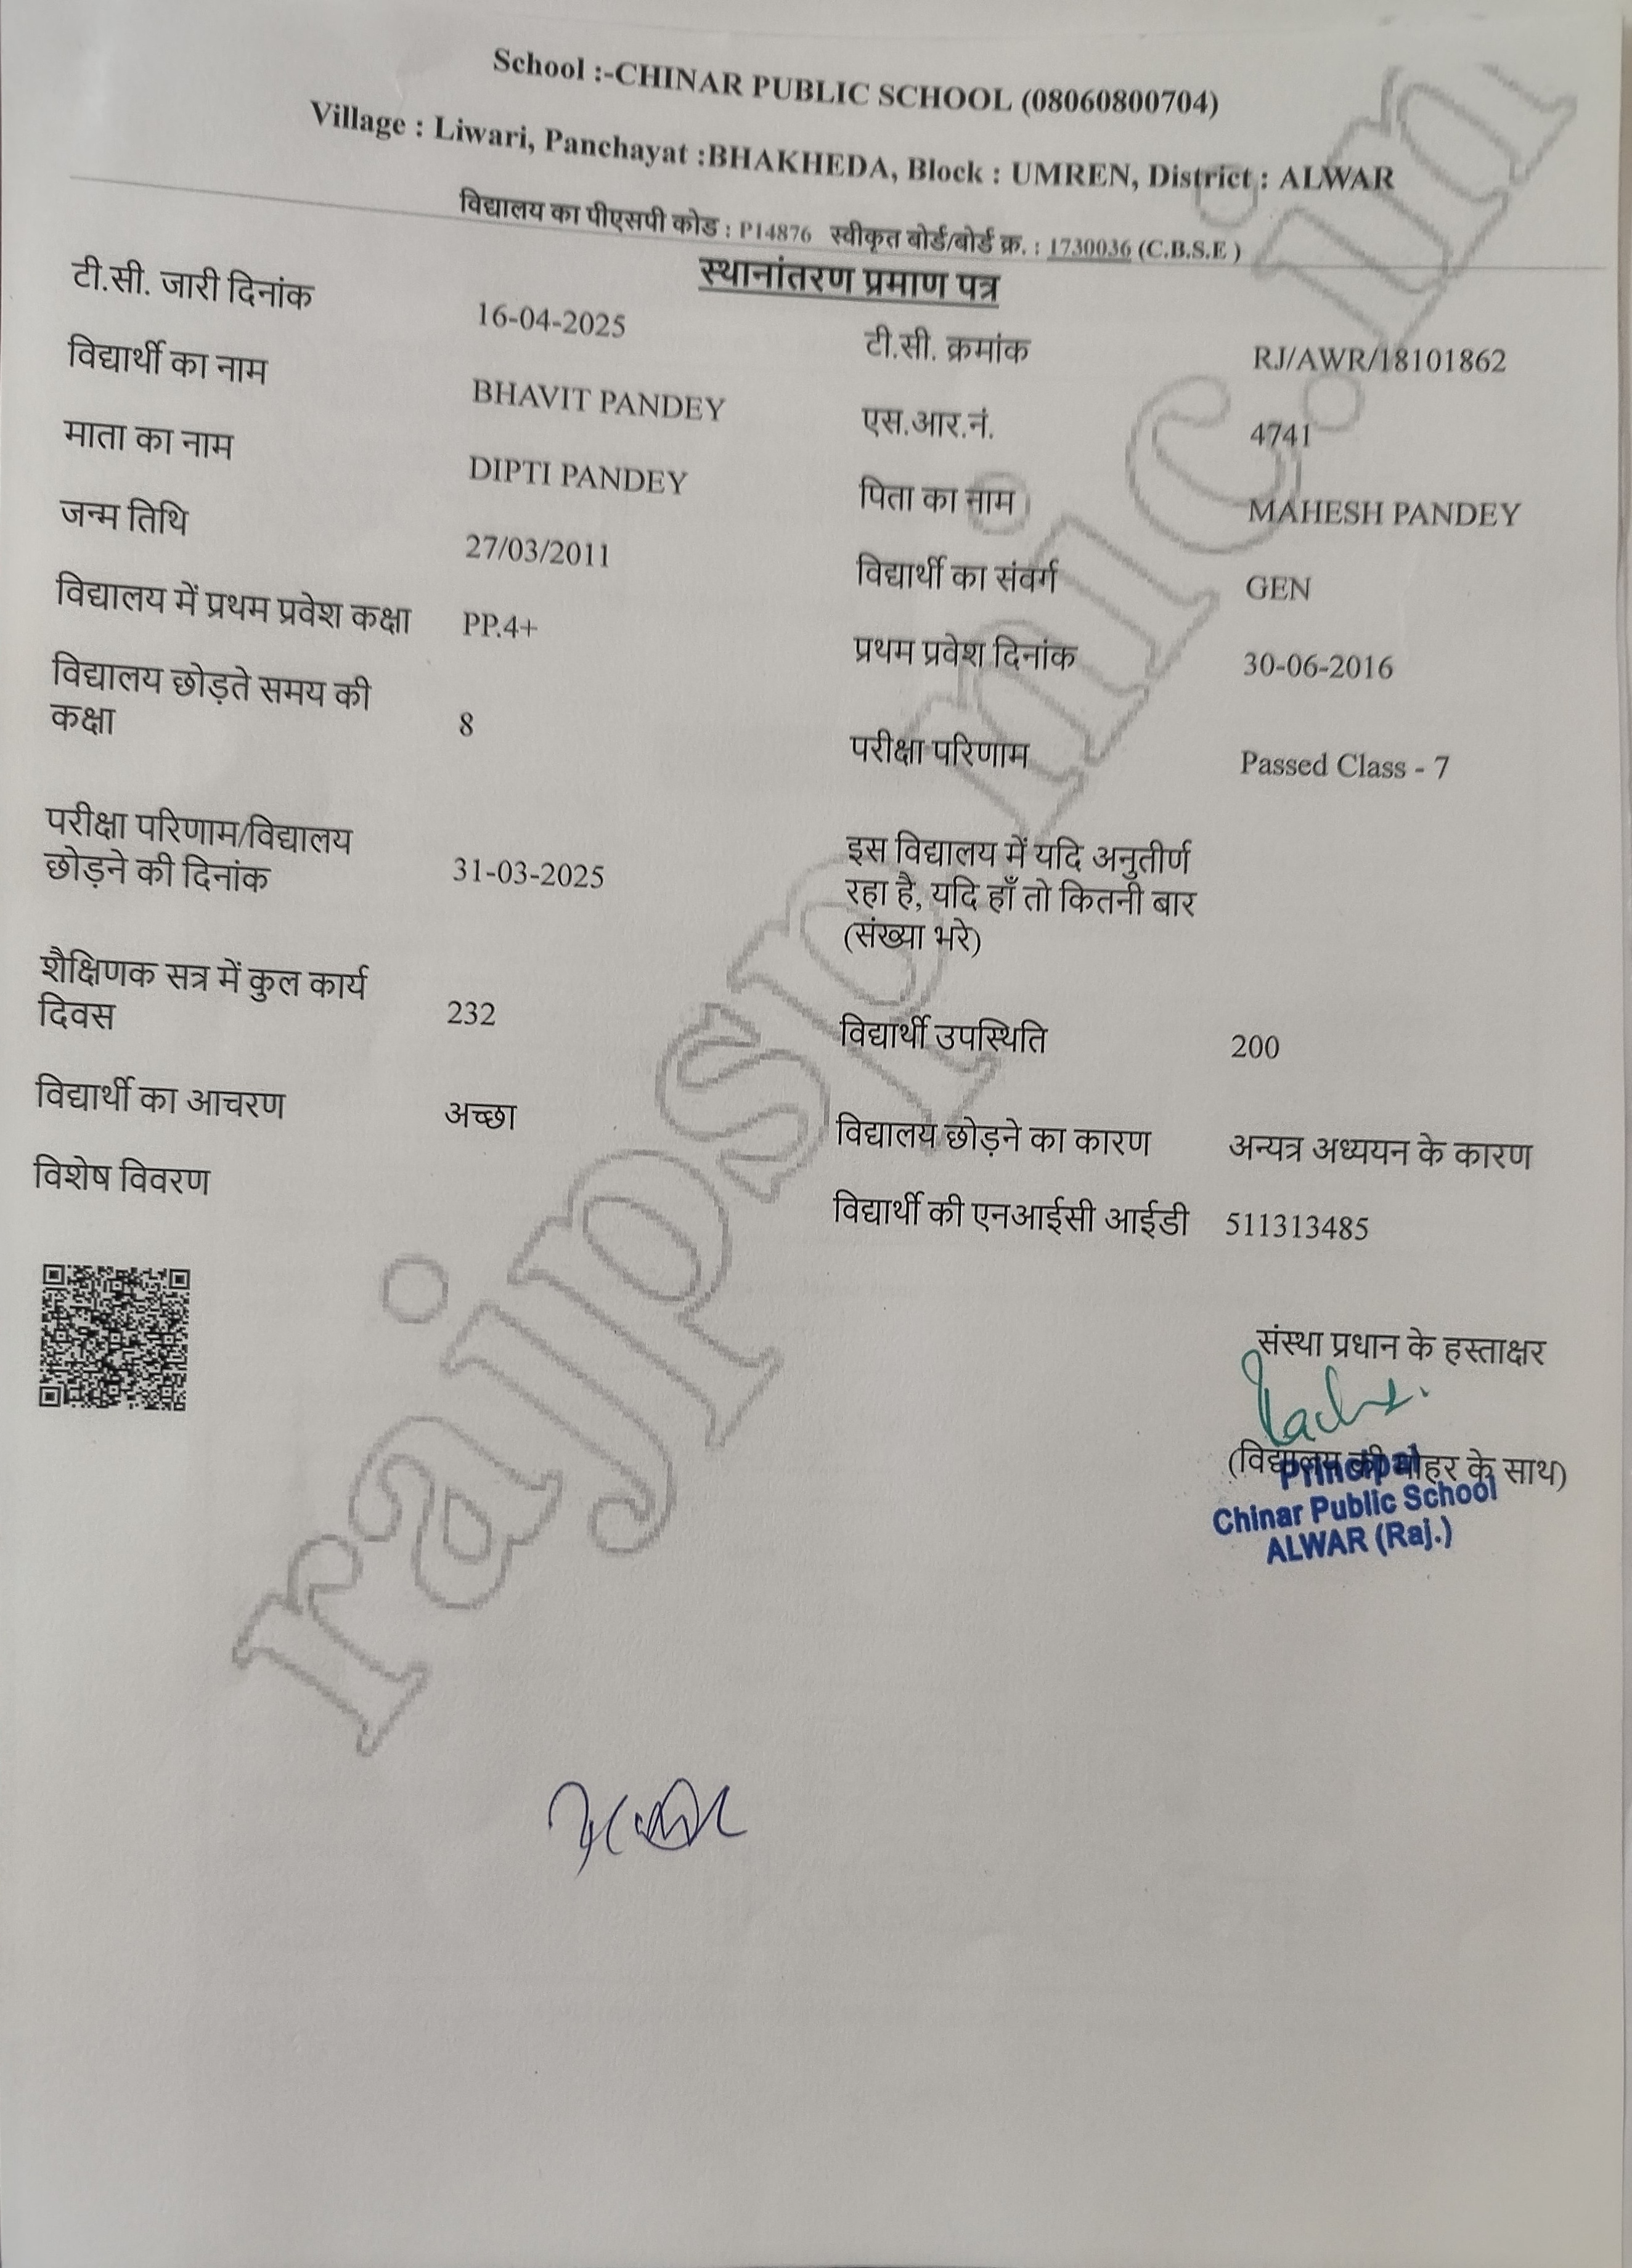 School :-CHINAR PUBLIC SCHOOL (08060800704)
Village : Liwari, Panchayat :BHAKHEDA, Block : UMREN, District : ALWAR
विद्यालय का पीएसपी कोड : P14876 स्वीकृत बोर्ड/बोर्ड क्र. : 1730036 (C.B.S.E )
स्थानांतरण प्रमाण पत्र
टी.सी. जारी दिनांक 16-04-2025 टी.सी. क्रमांक RJ/AWR/18101862
विद्यार्थी का नाम BHAVIT PANDEY एस.आर.नं. 4741
माता का नाम DIPTI PANDEY पिता का नाम MAHESH PANDEY
जन्म तिथि 27/03/2011 विद्यार्थी का संवर्ग GEN
विद्यालय में प्रथम प्रवेश कक्षा PP.4+ प्रथम प्रवेश दिनांक 30-06-2016
विद्यालय छोड़ते समय की
कक्षा 8 परीक्षा परिणाम Passed Class - 7
परीक्षा परिणाम/विद्यालय
छोड़ने की दिनांक 31-03-2025
इस विद्यालय में यदि अनुतीर्ण
रहा है, यदि हाँ तो कितनी बार
(संख्या भरे)
शैक्षिणक सत्र में कुल कार्य
दिवस 232 विद्यार्थी उपस्थिति 200
विद्यार्थी का आचरण अच्छा विद्यालय छोड़ने का कारण अन्यत्र अध्ययन के कारण
विशेष विवरण विद्यार्थी की एनआईसी आईडी 511313485
संस्था प्रधान के हस्ताक्षर
(विद्यालय की मोहर के साथ)
Principal
Chinar Public School
ALWAR (Raj.)
rajpsp.nic.in